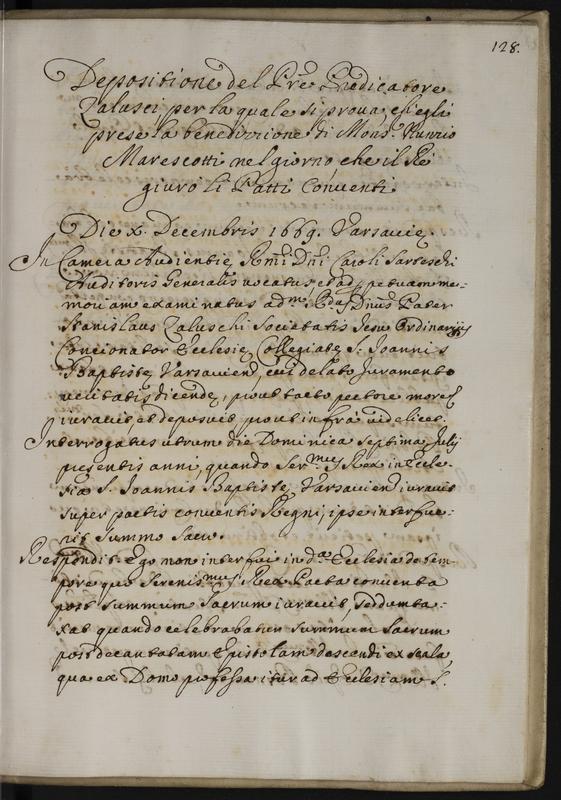 128.
Depositione del Pre Predicatore
Zalusci per la quale si prova, ch'egli
prese la benedizzione di Monsr. Nunzio
Marescotti nel giorno che il Rè
giurò li Patti Conventi.
Die x. Decembris 1669. Varsavie.
In Camera Audientie Rmi Dni Caroli
Auditoris Generalis vocatus et ad perpetuam me-
moriam examinatus adm. Rdus Dnus Pater
Stanislaus Zaluschi Societatis Jesu Ordinarius
Concionator Ecclesie Collegiate S. Joannis
Baptiste Varsavien, cui delato Juramento
veritatis dicende, prout tacto pectore more
iuravit et deposuit prout infra videlicet.
Interrogatus utrum die Dominica septima Julij
presentis anni quando Sermus Rex in Eccle-
sia S. Joannis Baptiste Varsavien iuravit
super pactis conventis Regni, ipse interfue-
rit summo sacro.
Respondit: Ego non interfui in da Ecclesia tem-
pore quo Serenismus Rex Pacta conventa
post summum sacrum iuravit, sed dumta-
xat quando celebrabatur summum sacrum
post decantatam Epistolam descendi ex scala,
qua ex Domo professa itur ad Ecclesiam S.